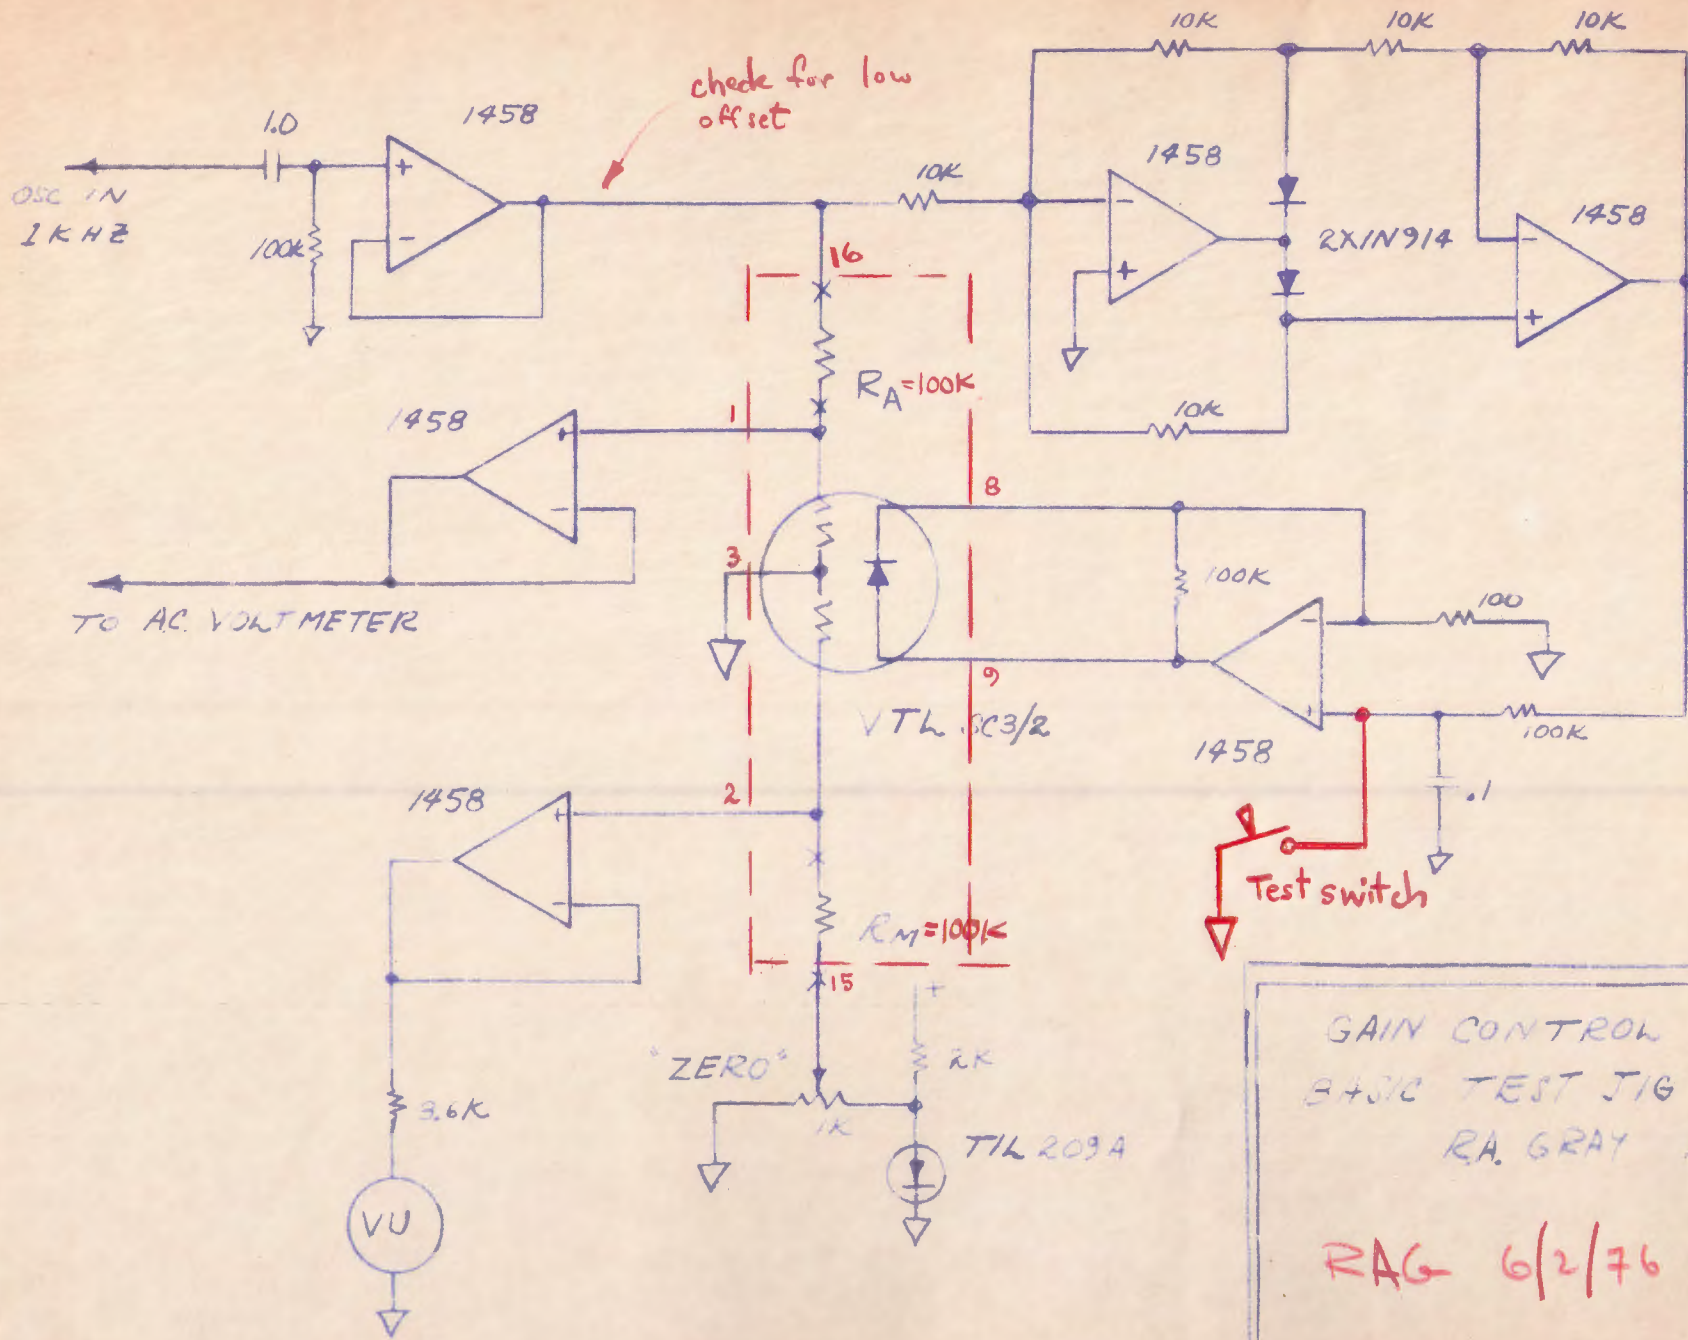 10K
10K
10K
check for low
offset
1.0
1458
+
-
OSC IN
1 KHZ
100K
10K
1458
-
+
2X1N914
1458
-
+
16
RA=100K
10K
1458
+
-
1
8
3
TO AC VOLTMETER
100K
100
9
VTL 5C3/2
-
+
1458
100K
.1
Test switch
1458
+
-
2
RM=100K
15
+
"ZERO"
2K
1K
3.6K
TIL 209A
VU
GAIN CONTROL
BASIC TEST JIG
R.A. GRAY
RAG 6/2/76